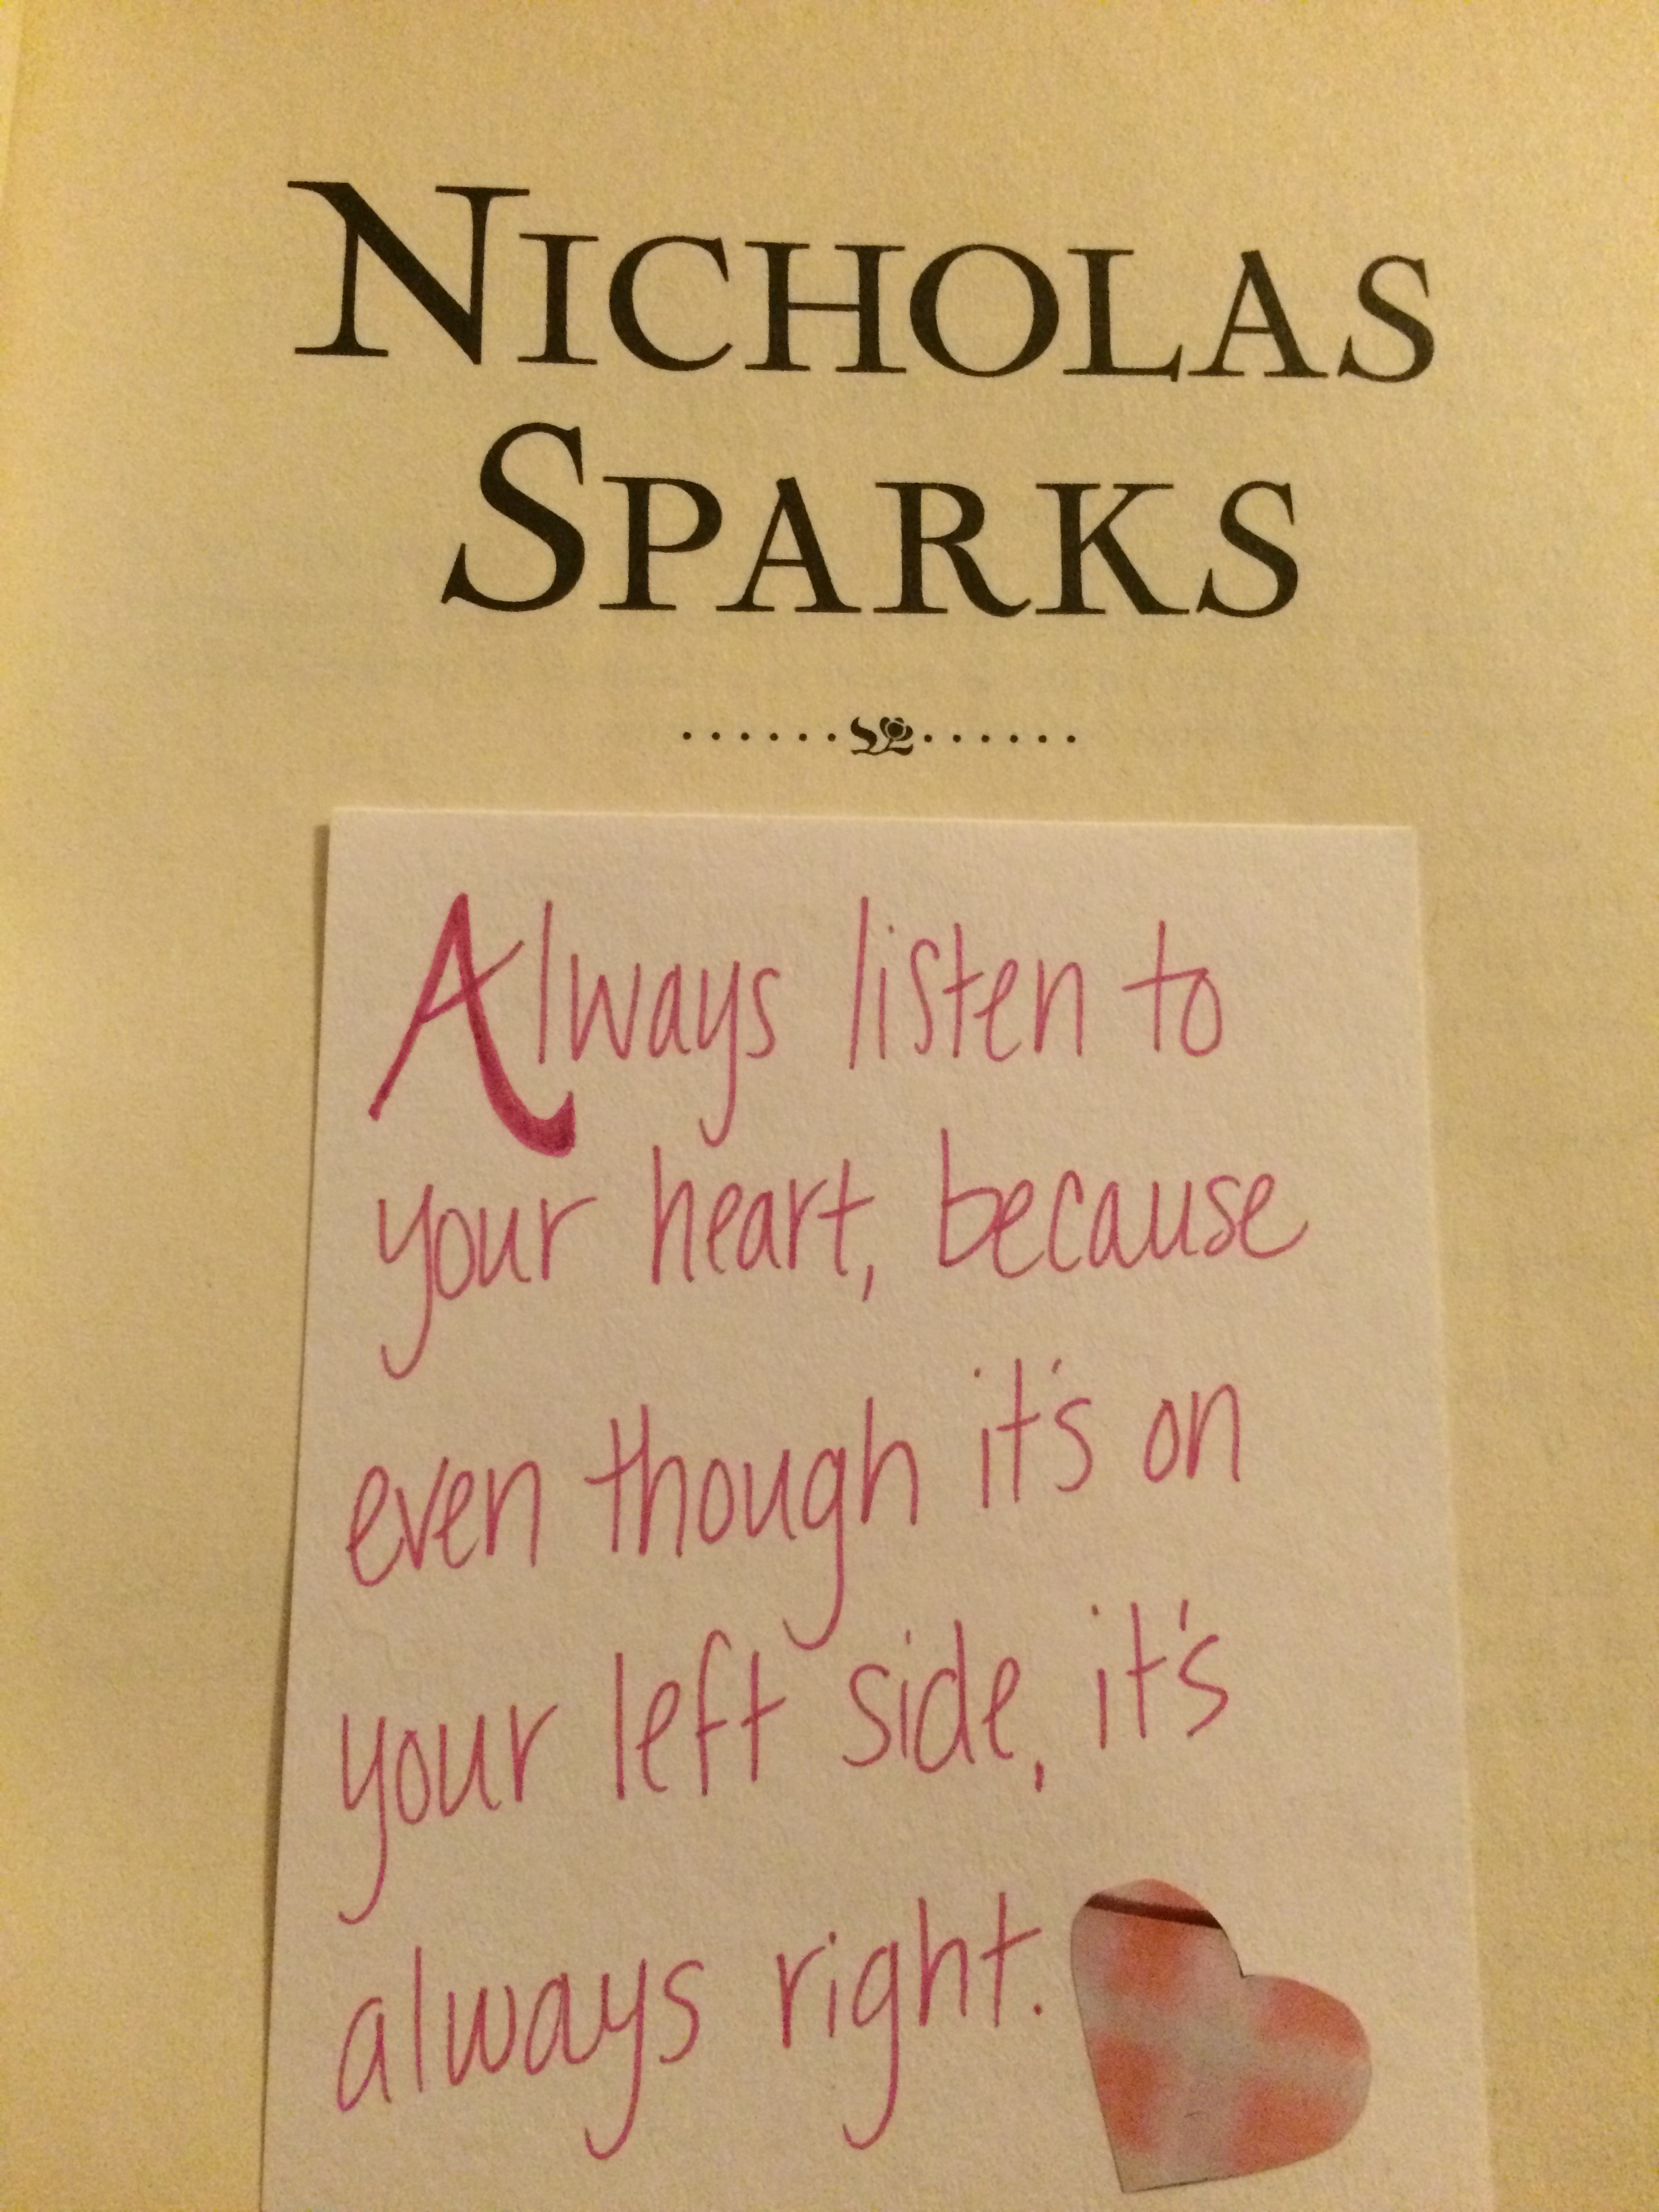 NICHOLAS
SPARKS
Always listen to
your heart, because
even though it's on
your left side, it's
always right.